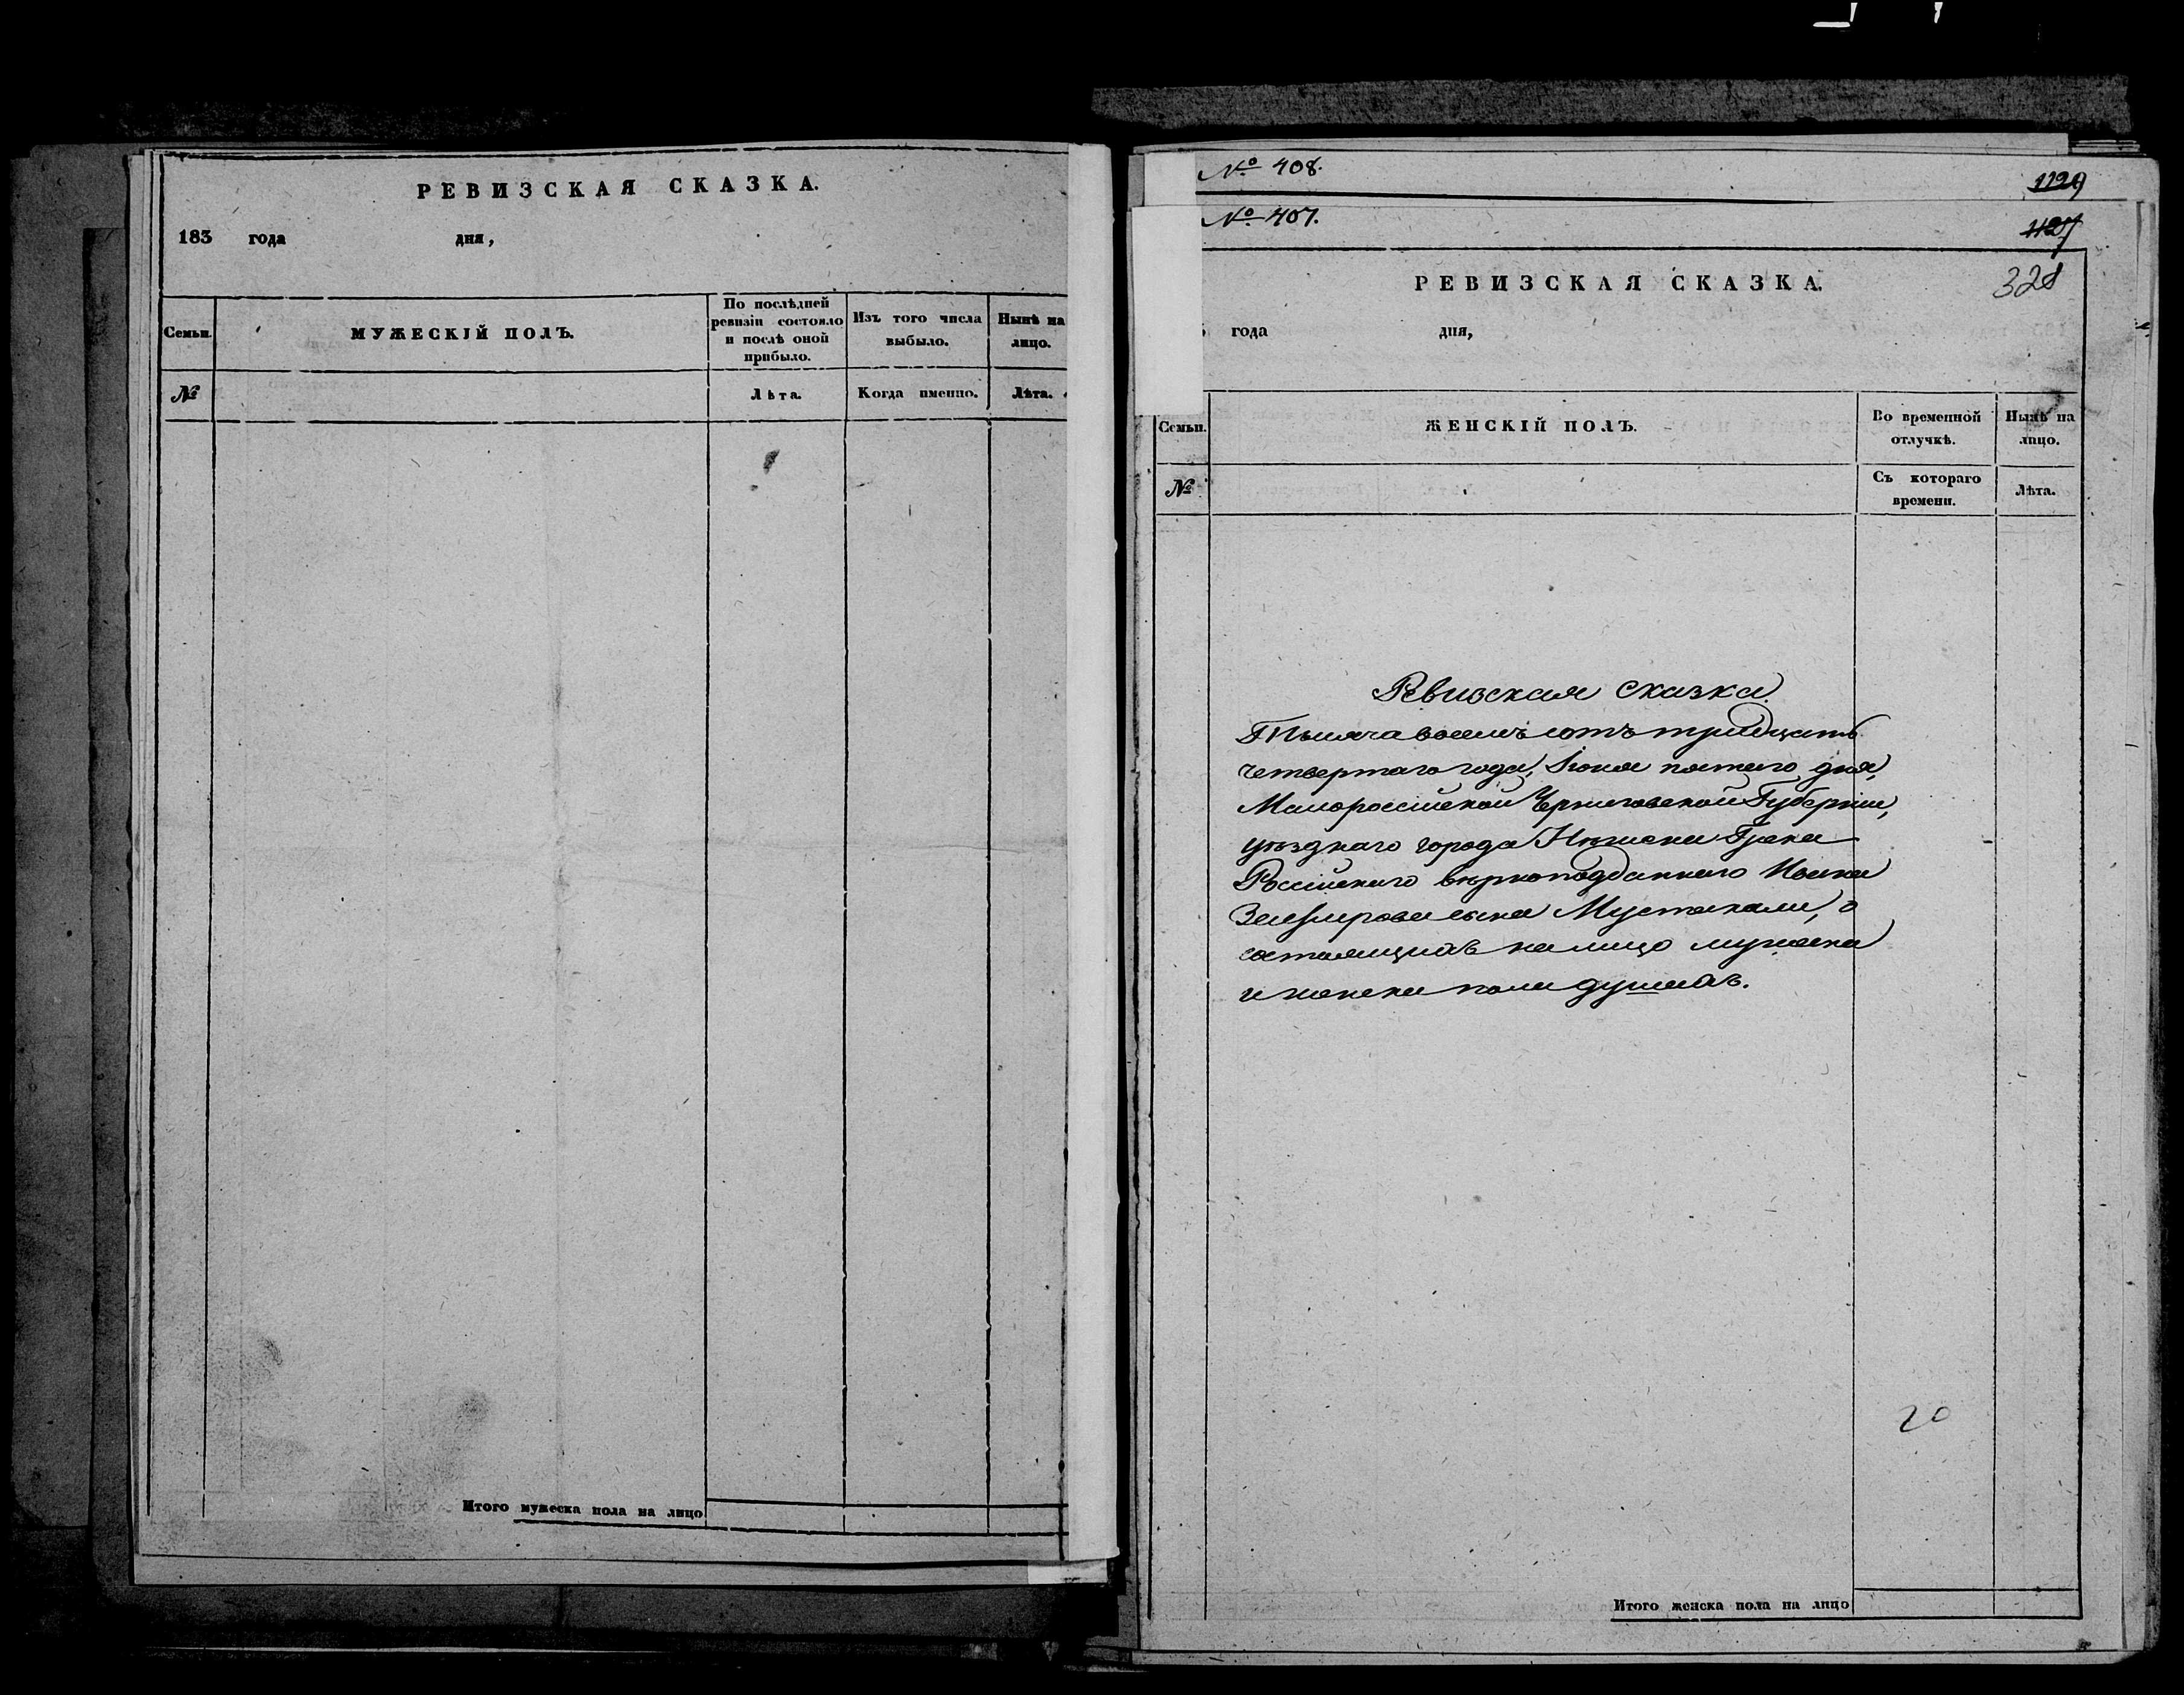 РЕВИЗСКАЯ СКАЗКА.
183 года дня,
Семьи.
МУЖЕСКІЙ ПОЛЪ.
По послѣдней ревизіи состояло и послѣ оной прибыло.
Изъ того числа выбыло.
Нынѣ на лицо.
№
Лѣта.
Когда именно.
Лѣта.
Итого мужеска пола на лицо
№ 408.
1129
№ 407.
1127
328
РЕВИЗСКАЯ СКАЗКА.
года дня,
Семьи.
ЖЕНСКІЙ ПОЛЪ.
Во временной отлучкѣ.
Нынѣ на лицо.
№
Съ котораго времени.
Лѣта.
Ревизская сказка
Тысяча восемъ сотъ тридцать
четвертаго года, Іюня пятаго дня,
Малороссійской Черниговской Губерніи,
уѣзднаго города Нѣжина Грека
Россійскаго вѣрноподданнаго
сына Мустакали, о
состоящихъ на лицо мужеска
и женска пола душахъ.
20
Итого женска пола на лицо